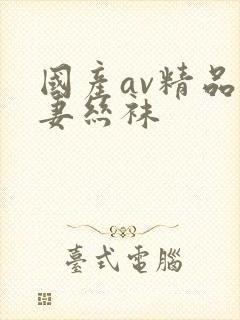 國產av精品
妻絲袜
臺式電腦